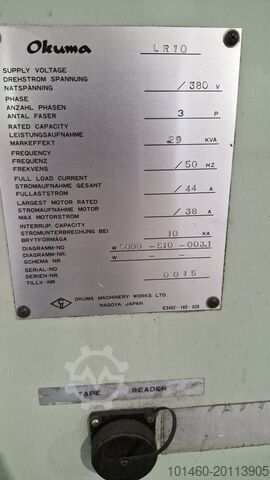 Okuma LR10
SUPPLY VOLTAGE
DREHSTROM SPANNUNG / 380 V
NATSPÄNNING
PHASE
ANZAHL PHASEN 3 P
ANTAL FASER
RATED CAPACITY
LEISTUNGSAUFNAHME 29 KVA
MARKEFFEKT
FREQUENCY
FREQUENZ / 50 HZ
FREKVENS
FULL LOAD CURRENT
STROMAUFNAHME GESANT / 44 A
FULLASTSTRÖM
LARGEST MOTOR RATED
STROMAUFNAHME MOTOR / 38 A
MAX MOTORSTRÖM
INTERRUP. CAPACITY
STROMUNTERBRECHUNG BEI 10 KA
BRYTFÖRMÅGA
DIAGRAMM-NO W 5000-510-003.1
DIAGRAMM-NR. W
SCHEMA NR.
SERIAL-NO
SERIEN-NR. 0015
TILLV.-NR.
OKUMA MACHINERY WORKS LTD.
NAGOYA JAPAN E3402-183-028
TAPE READER
Machineseeker
101460-20113905